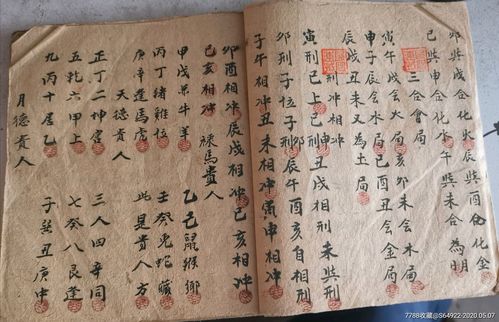 卯與戌合化火辰與酉合化金
巳與申合化水午與未合為明
三合會局
寅午戌會火局亥卯未會木局
申子辰會水局巳酉丑會金局
辰戌丑未又為土局
刑冲相冲
寅刑巳上巳刑申丑戌相刑未與刑
卯刑子位子刑卯辰午酉亥自相刑
子午相冲丑未相冲寅申相冲
卯酉相冲辰戌相冲巳亥相冲
巳亥相冲 祿馬貴人
甲戊牛羊 乙己鼠猴鄉
丙丁猪雞位 壬癸兔蛇藏
庚辛逢馬虎 此是貴人方
天德貴人
正丁二神宮 三人四辛同
五乾六甲上 七癸八艮逢
九丙十居乙 子巽丑庚中
月德貴人
7788收藏@S64922-2020.05.07